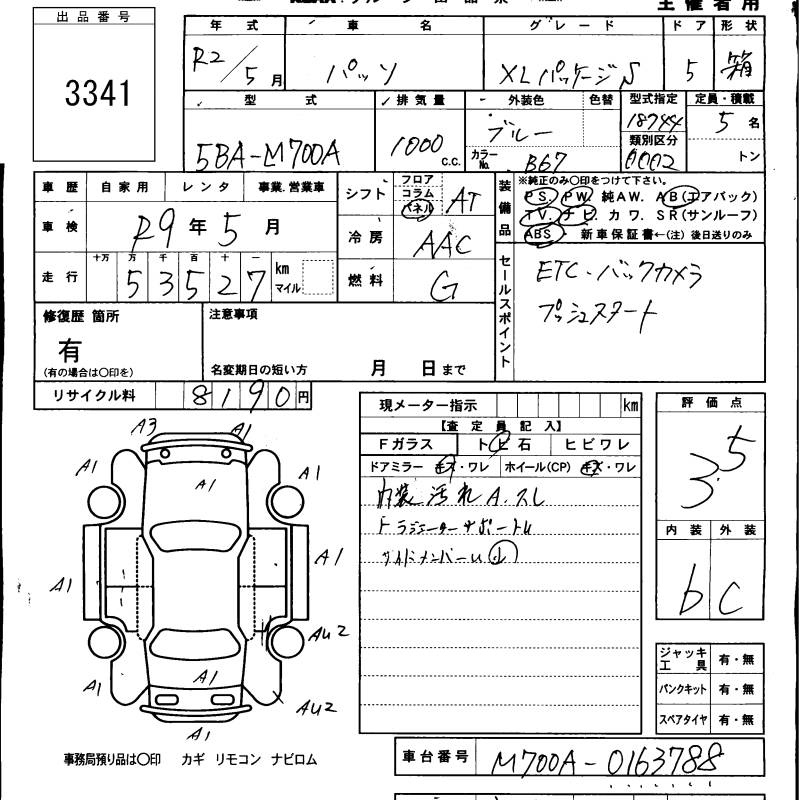 主催者用
出品番号
3341
年式 車名 グレード ドア 形状
R2/5月 パッソ XLパッケージS 5 箱
型式 排気量 外装色 色替 型式指定 定員・積載
5BA-M700A 1000 c.c. ブルー 18744 5名
カラーNo. B67 類別区分 0002 トン
車歴 自家用 レンタ 事業.営業車
車検 R9年5月
走行 十万 万 千 百 十 一
53527 km マイル
シフト フロア コラム パネル AT
冷房 AAC
燃料 G
装備品 ※純正のみ〇印をつけて下さい。
PS. PW. 純AW. AB(エアバック)
TV. ナビ. カワ. SR(サンルーフ)
ABS・ 新車保証書←(注)後日送りのみ
セールスポイント
ETC・バックカメラ
プッシュスタート
修復歴 箇所
有
(有の場合は〇印を)
注意事項
名変期日の短い方 月 日まで
リサイクル料 8190円
現メーター指示 km
【査定員記入】
Fガラス トビ石 ヒビワレ
ドアミラー キズ・ワレ ホイール(CP) キズ・ワレ
内装 汚れ A.スレ
FラジエーターサポートU
サイドメンバーU小
評価点
3.5
内装 外装
b C
ジャッキ工具 有・無
パンクキット 有・無
スペアタイヤ 有・無
A3 A1
A1 A1 A1
A1 A1
AU2
A1 A1 AU2
A1
事務局預り品は〇印 カギ リモコン ナビロム
車台番号 M700A-0163788